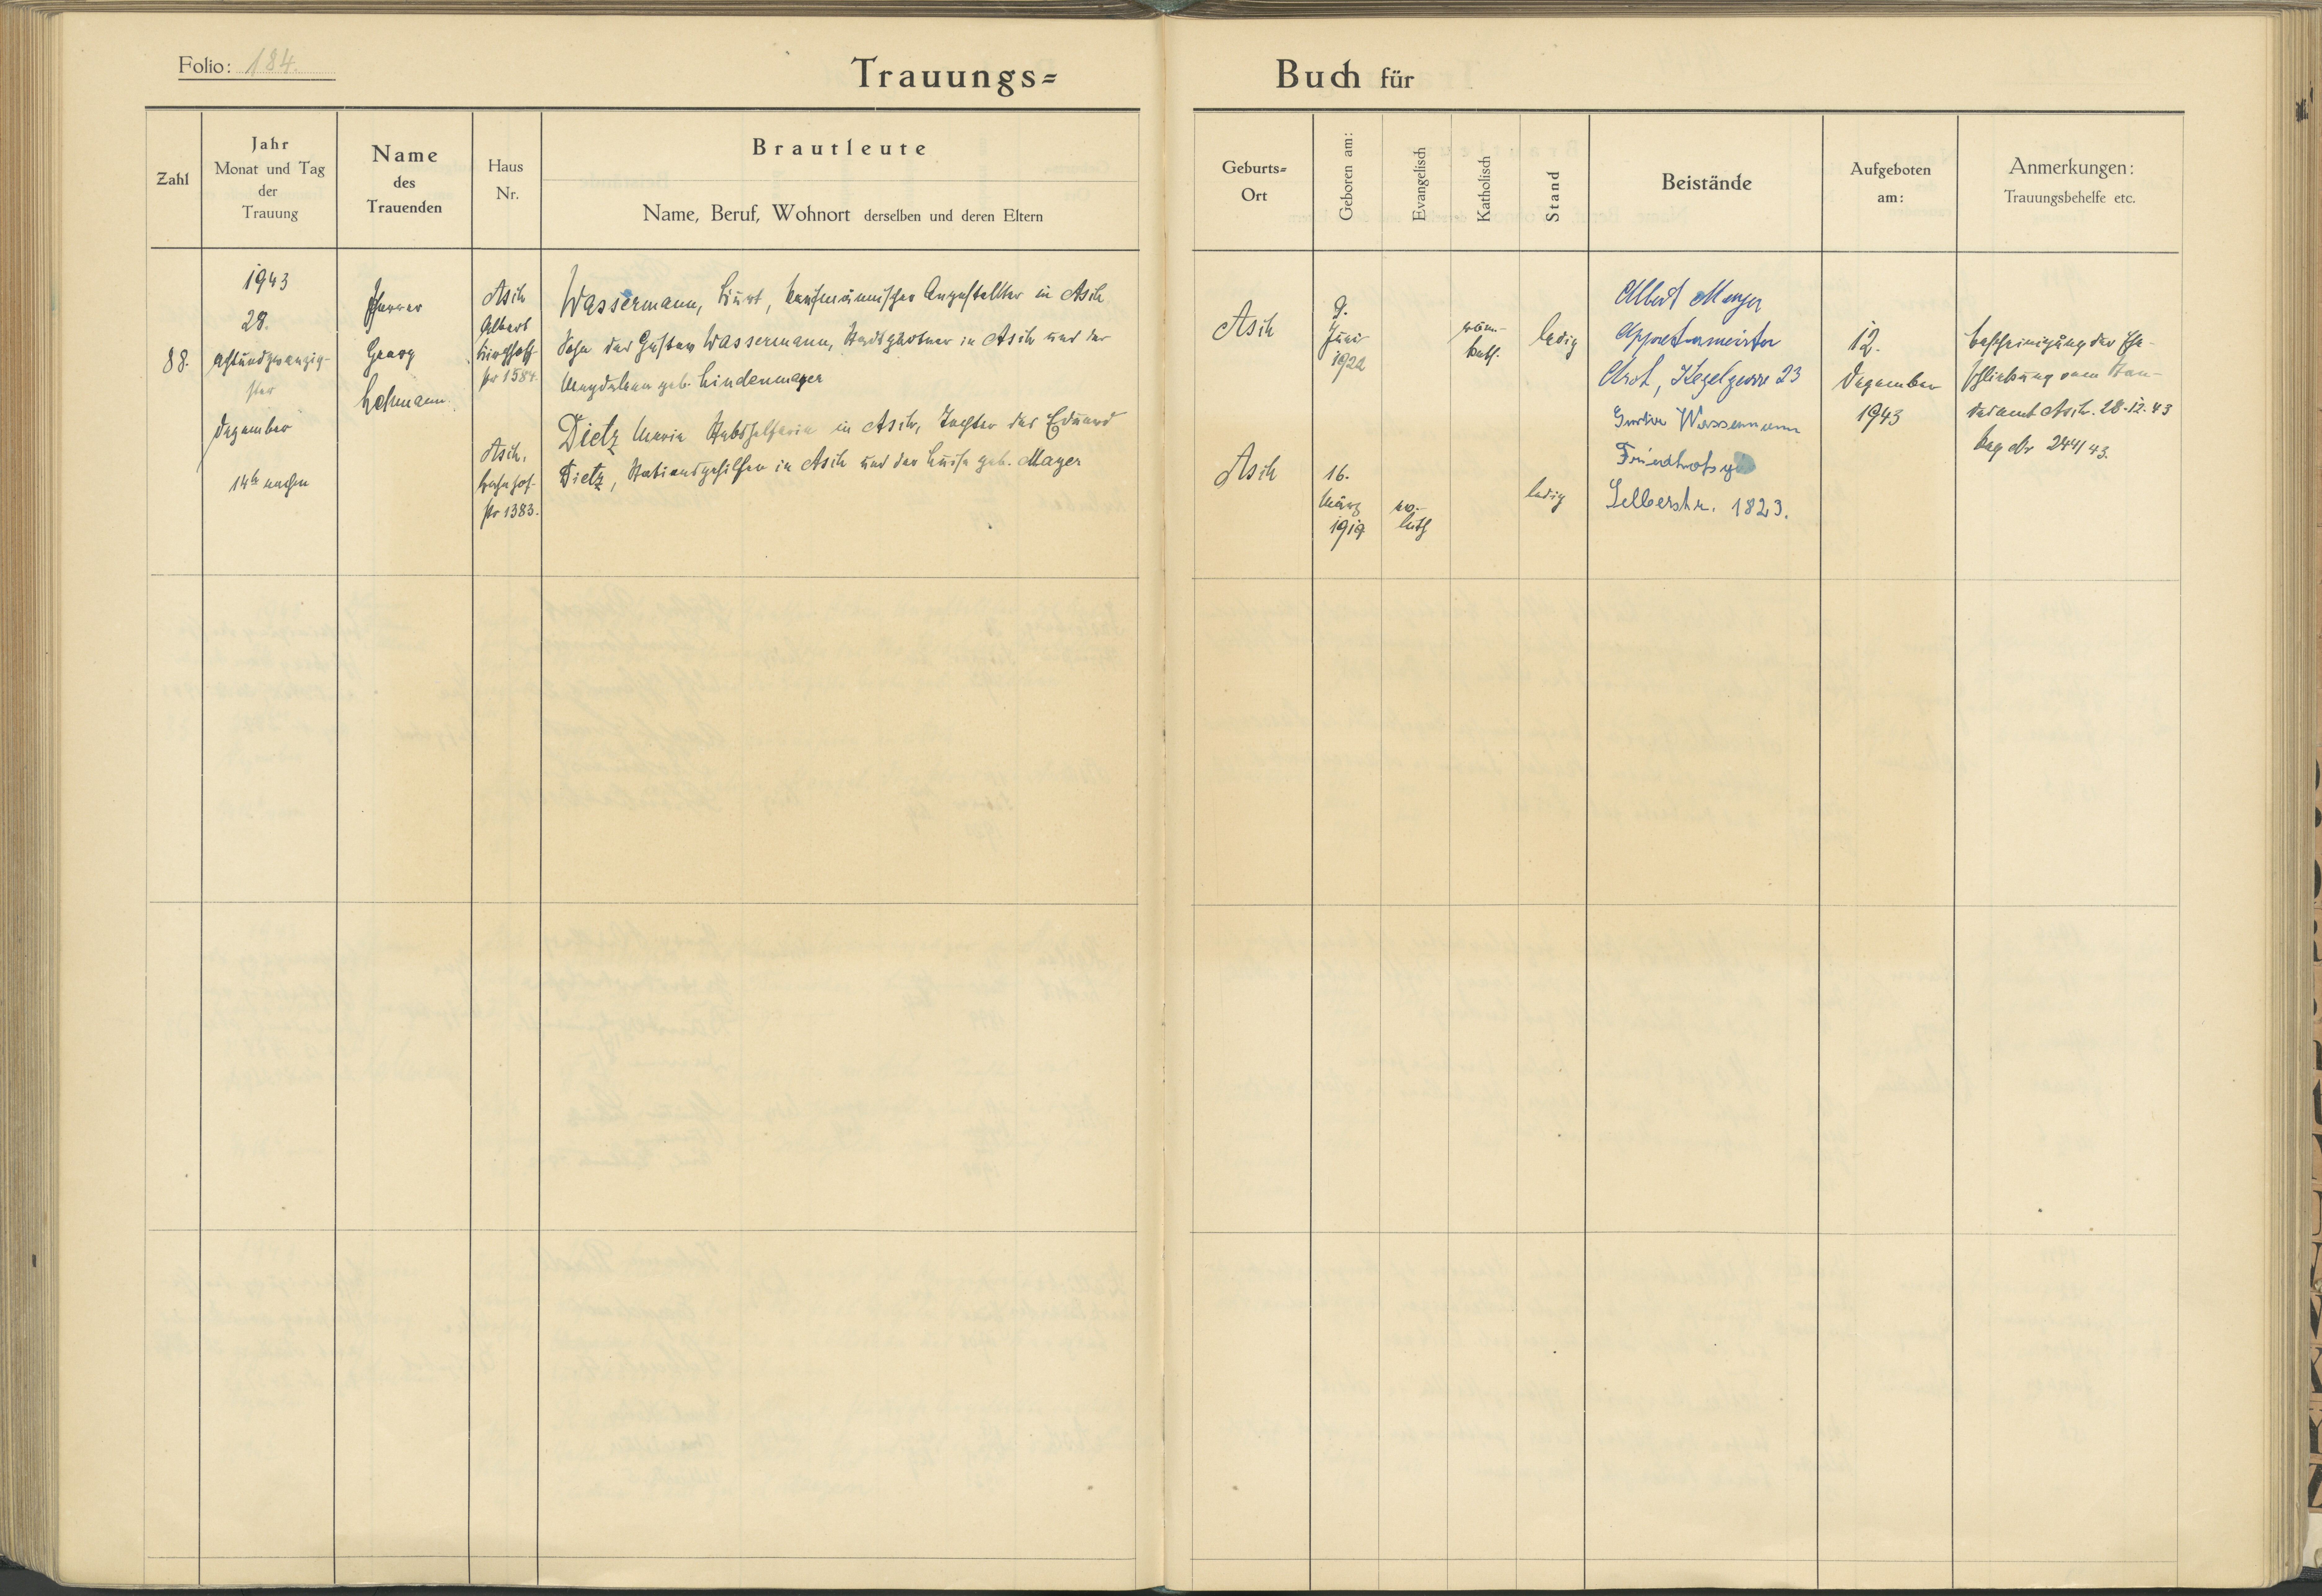 Folio: 184.
Trauungs=
Buch für
Zahl
Jahr
Monat und Tag
der
Trauung
Name
des
Trauenden
Haus
Nr.
Brautleute
Name, Beruf, Wohnort derselben und deren Eltern
Geburts=
Ort
Geboren am:
Evangelisch
Katholisch
Stand
Beistände
Aufgeboten
am:
Anmerkungen:
Trauungsbehelfe etc.
88.
1943
28.
achtundzwanzig-
ster
Dezember
14h nachm
Pfarrer
Georg
Hofmann.
Asch
Albert
Kirchhoff-
str 1584.
Wassermann, Kurt, kaufmännischer Angestellter in Asch
Sohn des Gustav Wassermann, Stadtgärtner in Asch und der
Magdalena geb. Lindenmayer
Asch.
Bahnhof-
str 1383.
Dietz Maria Stabshelferin in Asch, Tochter des Eduard
Dietz, Stationsgehilfen in Asch und der Luise geb. Mayer
Asch
9.
Juni
1922
röm.-
kath.
ledig
Asch
16.
März
1919
ev.-
luth
ledig
Albert
Appreturmeister
Kegelgasse 23
Gustav Wassermann
Selberstr. 1823.
12.
Dezember
1943
Bescheinigung der Ehe-
schließung vom Stan-
desamt Asch. 28.12.43
Reg Nr 244/43.